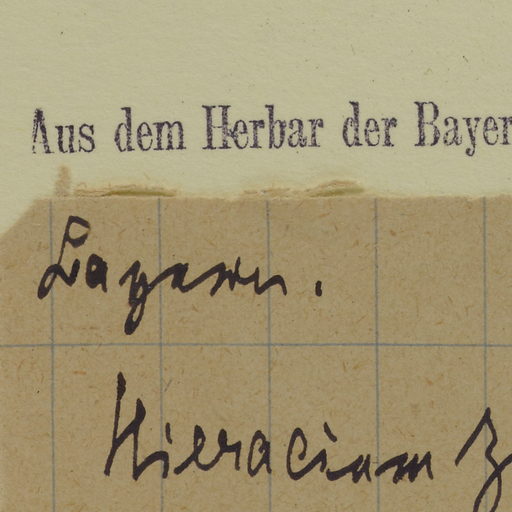 Aus dem Herbar der Bayer
Bayern.
Hieracium